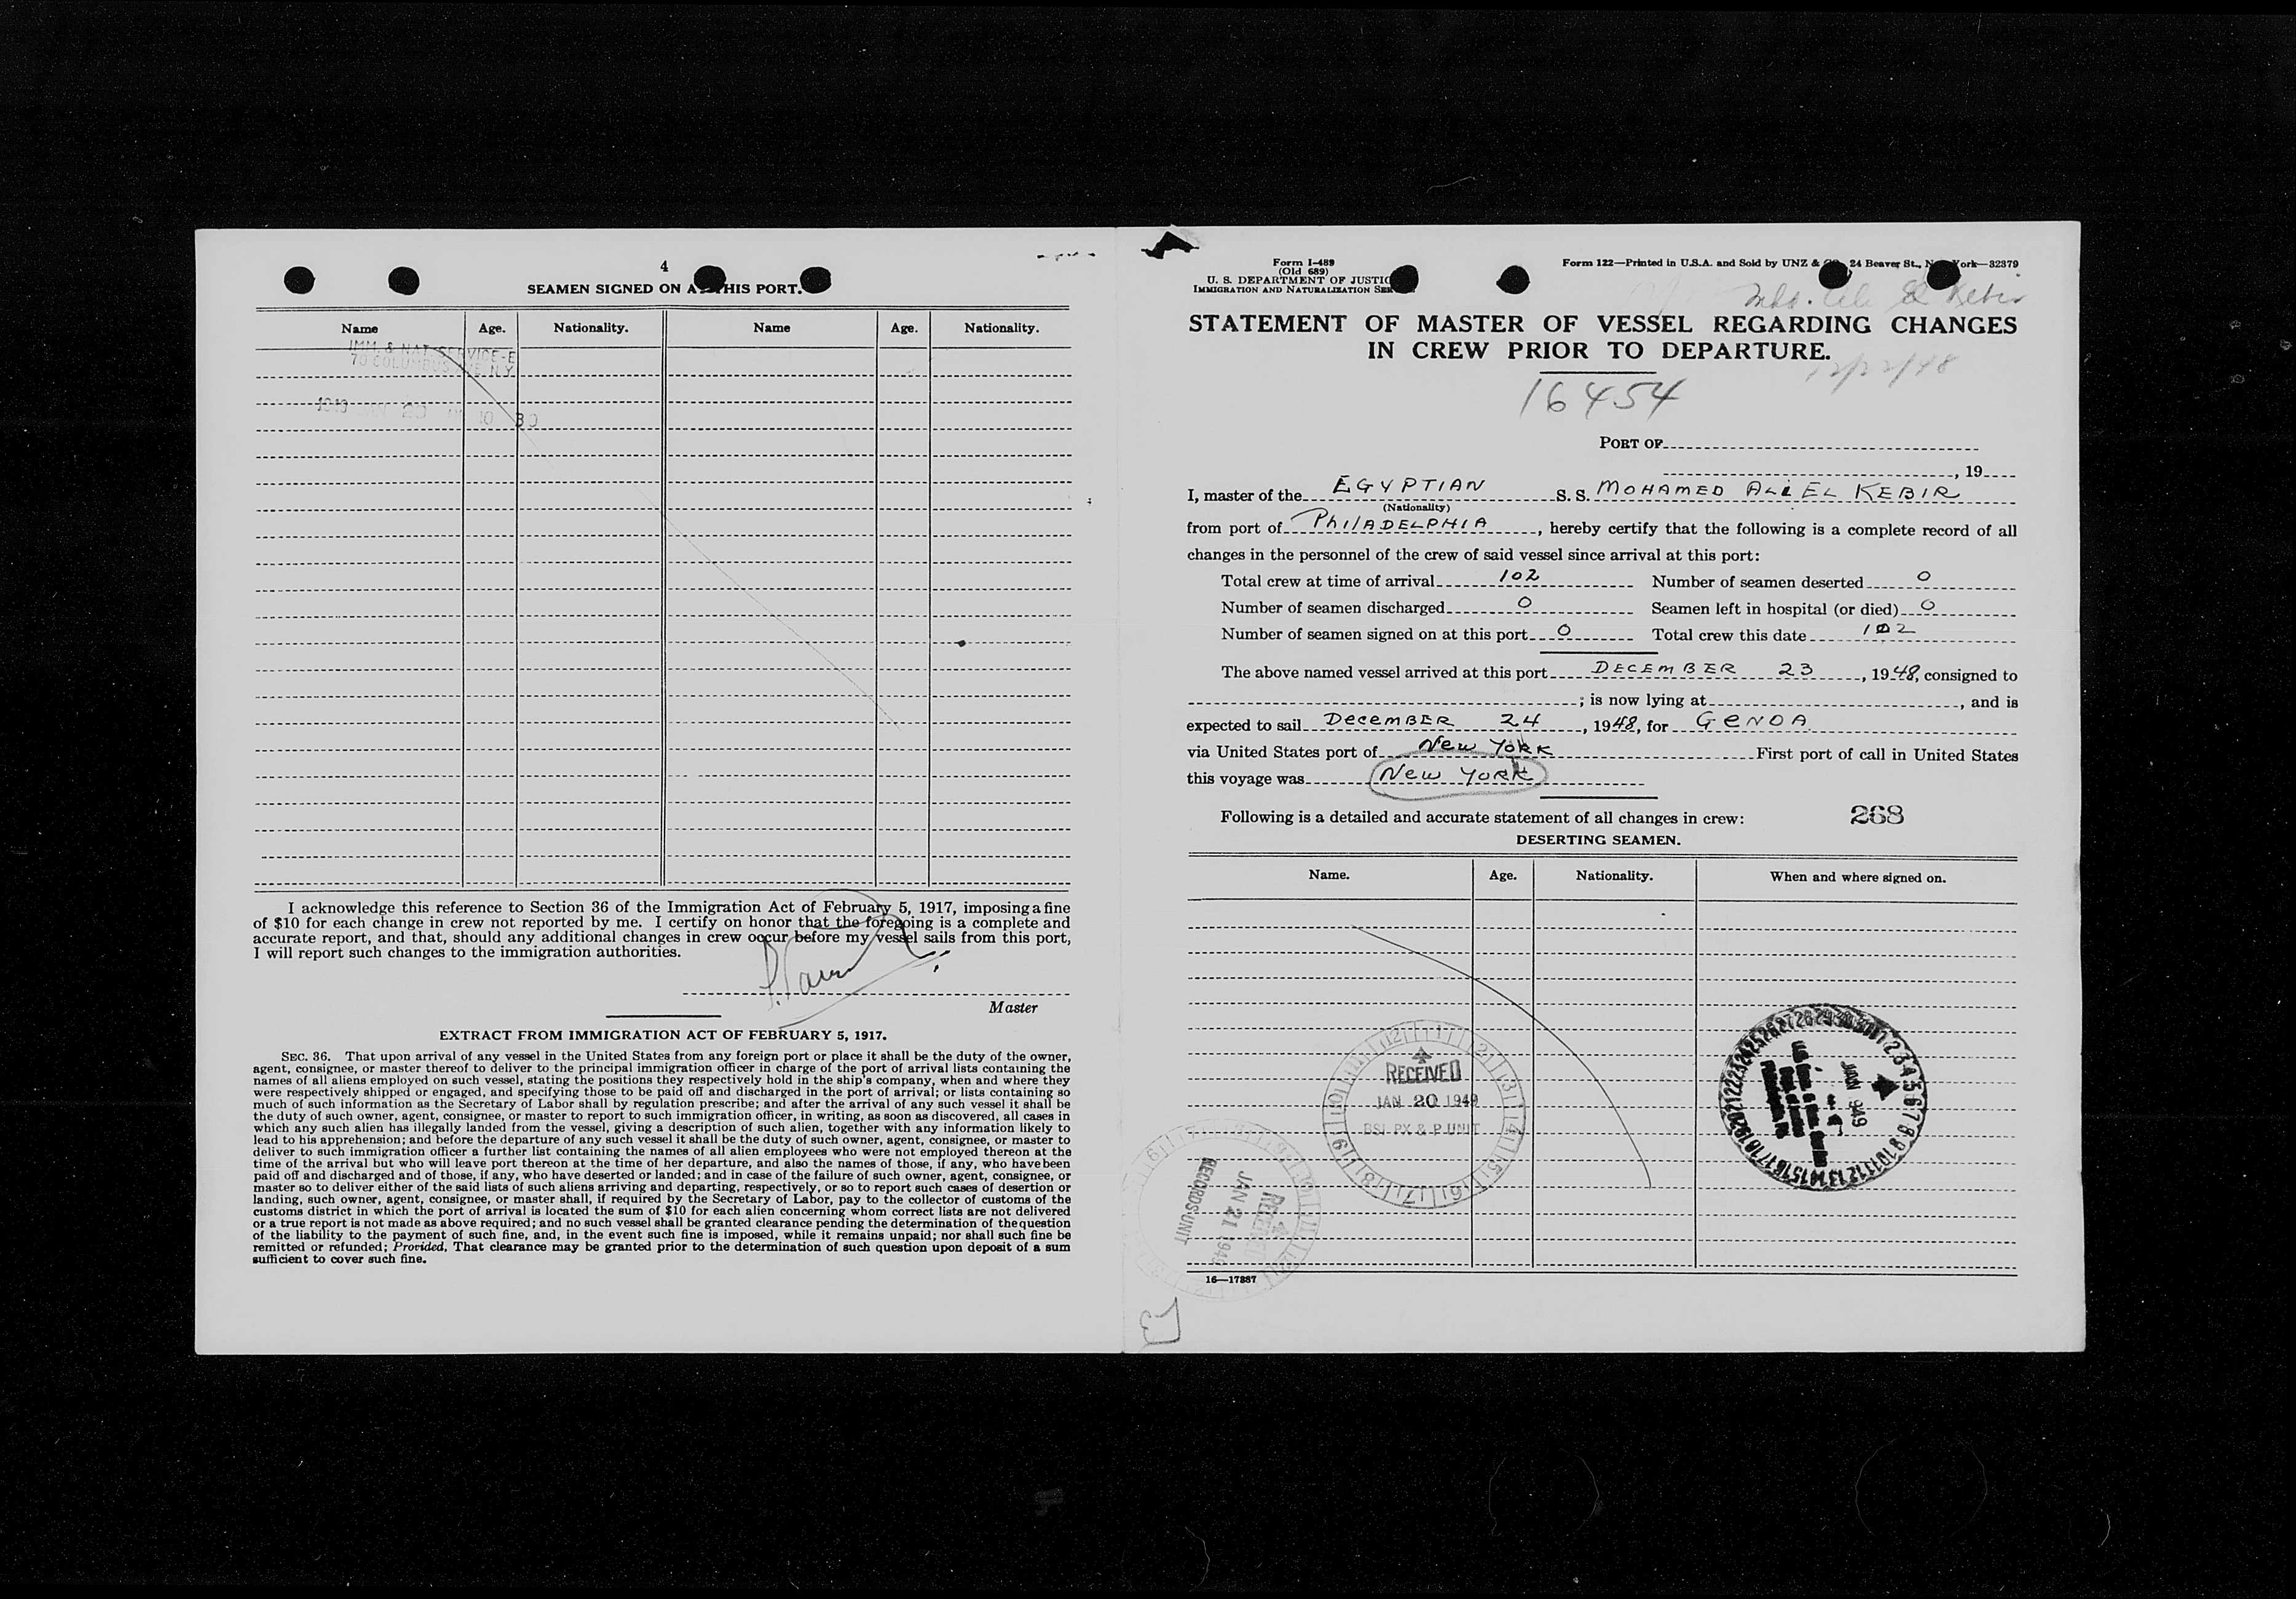 4
SEAMEN SIGNED ON A THIS PORT.
Name Age. Nationality. Name Age. Nationality.
IMM. & NAT. SERVICE-E
70 COLUMBUS AVE N.Y.
1949 JAN 20 10 30
I acknowledge this reference to Section 36 of the Immigration Act of February 5, 1917, imposing a fine
of $10 for each change in crew not reported by me. I certify on honor that the foregoing is a complete and
accurate report, and that, should any additional changes in crew occur before my vessel sails from this port,
I will report such changes to the immigration authorities.
Master
EXTRACT FROM IMMIGRATION ACT OF FEBRUARY 5, 1917.
SEC. 36. That upon arrival of any vessel in the United States from any foreign port or place it shall be the duty of the owner,
agent, consignee, or master thereof to deliver to the principal immigration officer in charge of the port of arrival lists containing the
names of all aliens employed on such vessel, stating the positions they respectively hold in the ship's company, when and where they
were respectively shipped or engaged, and specifying those to be paid off and discharged in the port of arrival; or lists containing so
much of such information as the Secretary of Labor shall by regulation prescribe; and after the arrival of any such vessel it shall be
the duty of such owner, agent, consignee, or master to report to such immigration officer, in writing, as soon as discovered, all cases in
which any such alien has illegally landed from the vessel, giving a description of such alien, together with any information likely to
lead to his apprehension; and before the departure of any such vessel it shall be the duty of such owner, agent, consignee, or master to
deliver to such immigration officer a further list containing the names of all alien employees who were not employed thereon at the
time of the arrival but who will leave port thereon at the time of her departure, and also the names of those, if any, who have been
paid off and discharged and of those, if any, who have deserted or landed; and in case of the failure of such owner, agent, consignee, or
master so to deliver either of the said lists of such aliens arriving and departing, respectively, or so to report such cases of desertion or
landing, such owner, agent, consignee, or master shall, if required by the Secretary of Labor, pay to the collector of customs of the
customs district in which the port of arrival is located the sum of $10 for each alien concerning whom correct lists are not delivered
or a true report is not made as above required; and no such vessel shall be granted clearance pending the determination of the question
of the liability to the payment of such fine, and, in the event such fine is imposed, while it remains unpaid; nor shall such fine be
remitted or refunded; Provided, That clearance may be granted prior to the determination of such question upon deposit of a sum
sufficient to cover such fine.
Form I-489
(Old 689)
U. S. DEPARTMENT OF JUSTIC
IMMIGRATION AND NATURALIZATION SER
Form 122—Printed in U.S.A. and Sold by UNZ & 24 Beaver St., N York—32379
Moh. Ali El Kebir
STATEMENT OF MASTER OF VESSEL REGARDING CHANGES
IN CREW PRIOR TO DEPARTURE.
12/22/48
16454
PORT OF
, 19
I, master of the EGYPTIAN S. S. MOHAMED ALI EL KEBIR
(Nationality)
from port of PHILADELPHIA, hereby certify that the following is a complete record of all
changes in the personnel of the crew of said vessel since arrival at this port:
Total crew at time of arrival 102 Number of seamen deserted 0
Number of seamen discharged 0 Seamen left in hospital (or died) 0
Number of seamen signed on at this port 0 Total crew this date 102
The above named vessel arrived at this port DECEMBER 23, 1948, consigned to
; is now lying at , and is
expected to sail DECEMBER 24, 1948, for GENOA
via United States port of New York First port of call in United States
this voyage was New York
Following is a detailed and accurate statement of all changes in crew: 268
DESERTING SEAMEN.
Name. Age. Nationality. When and where signed on.
RECEIVED
JAN 20 1949
BSI PX & P UNIT
JAN 1949
RECEIVED
JAN 21 1949
RECORDS UNIT
16—17887